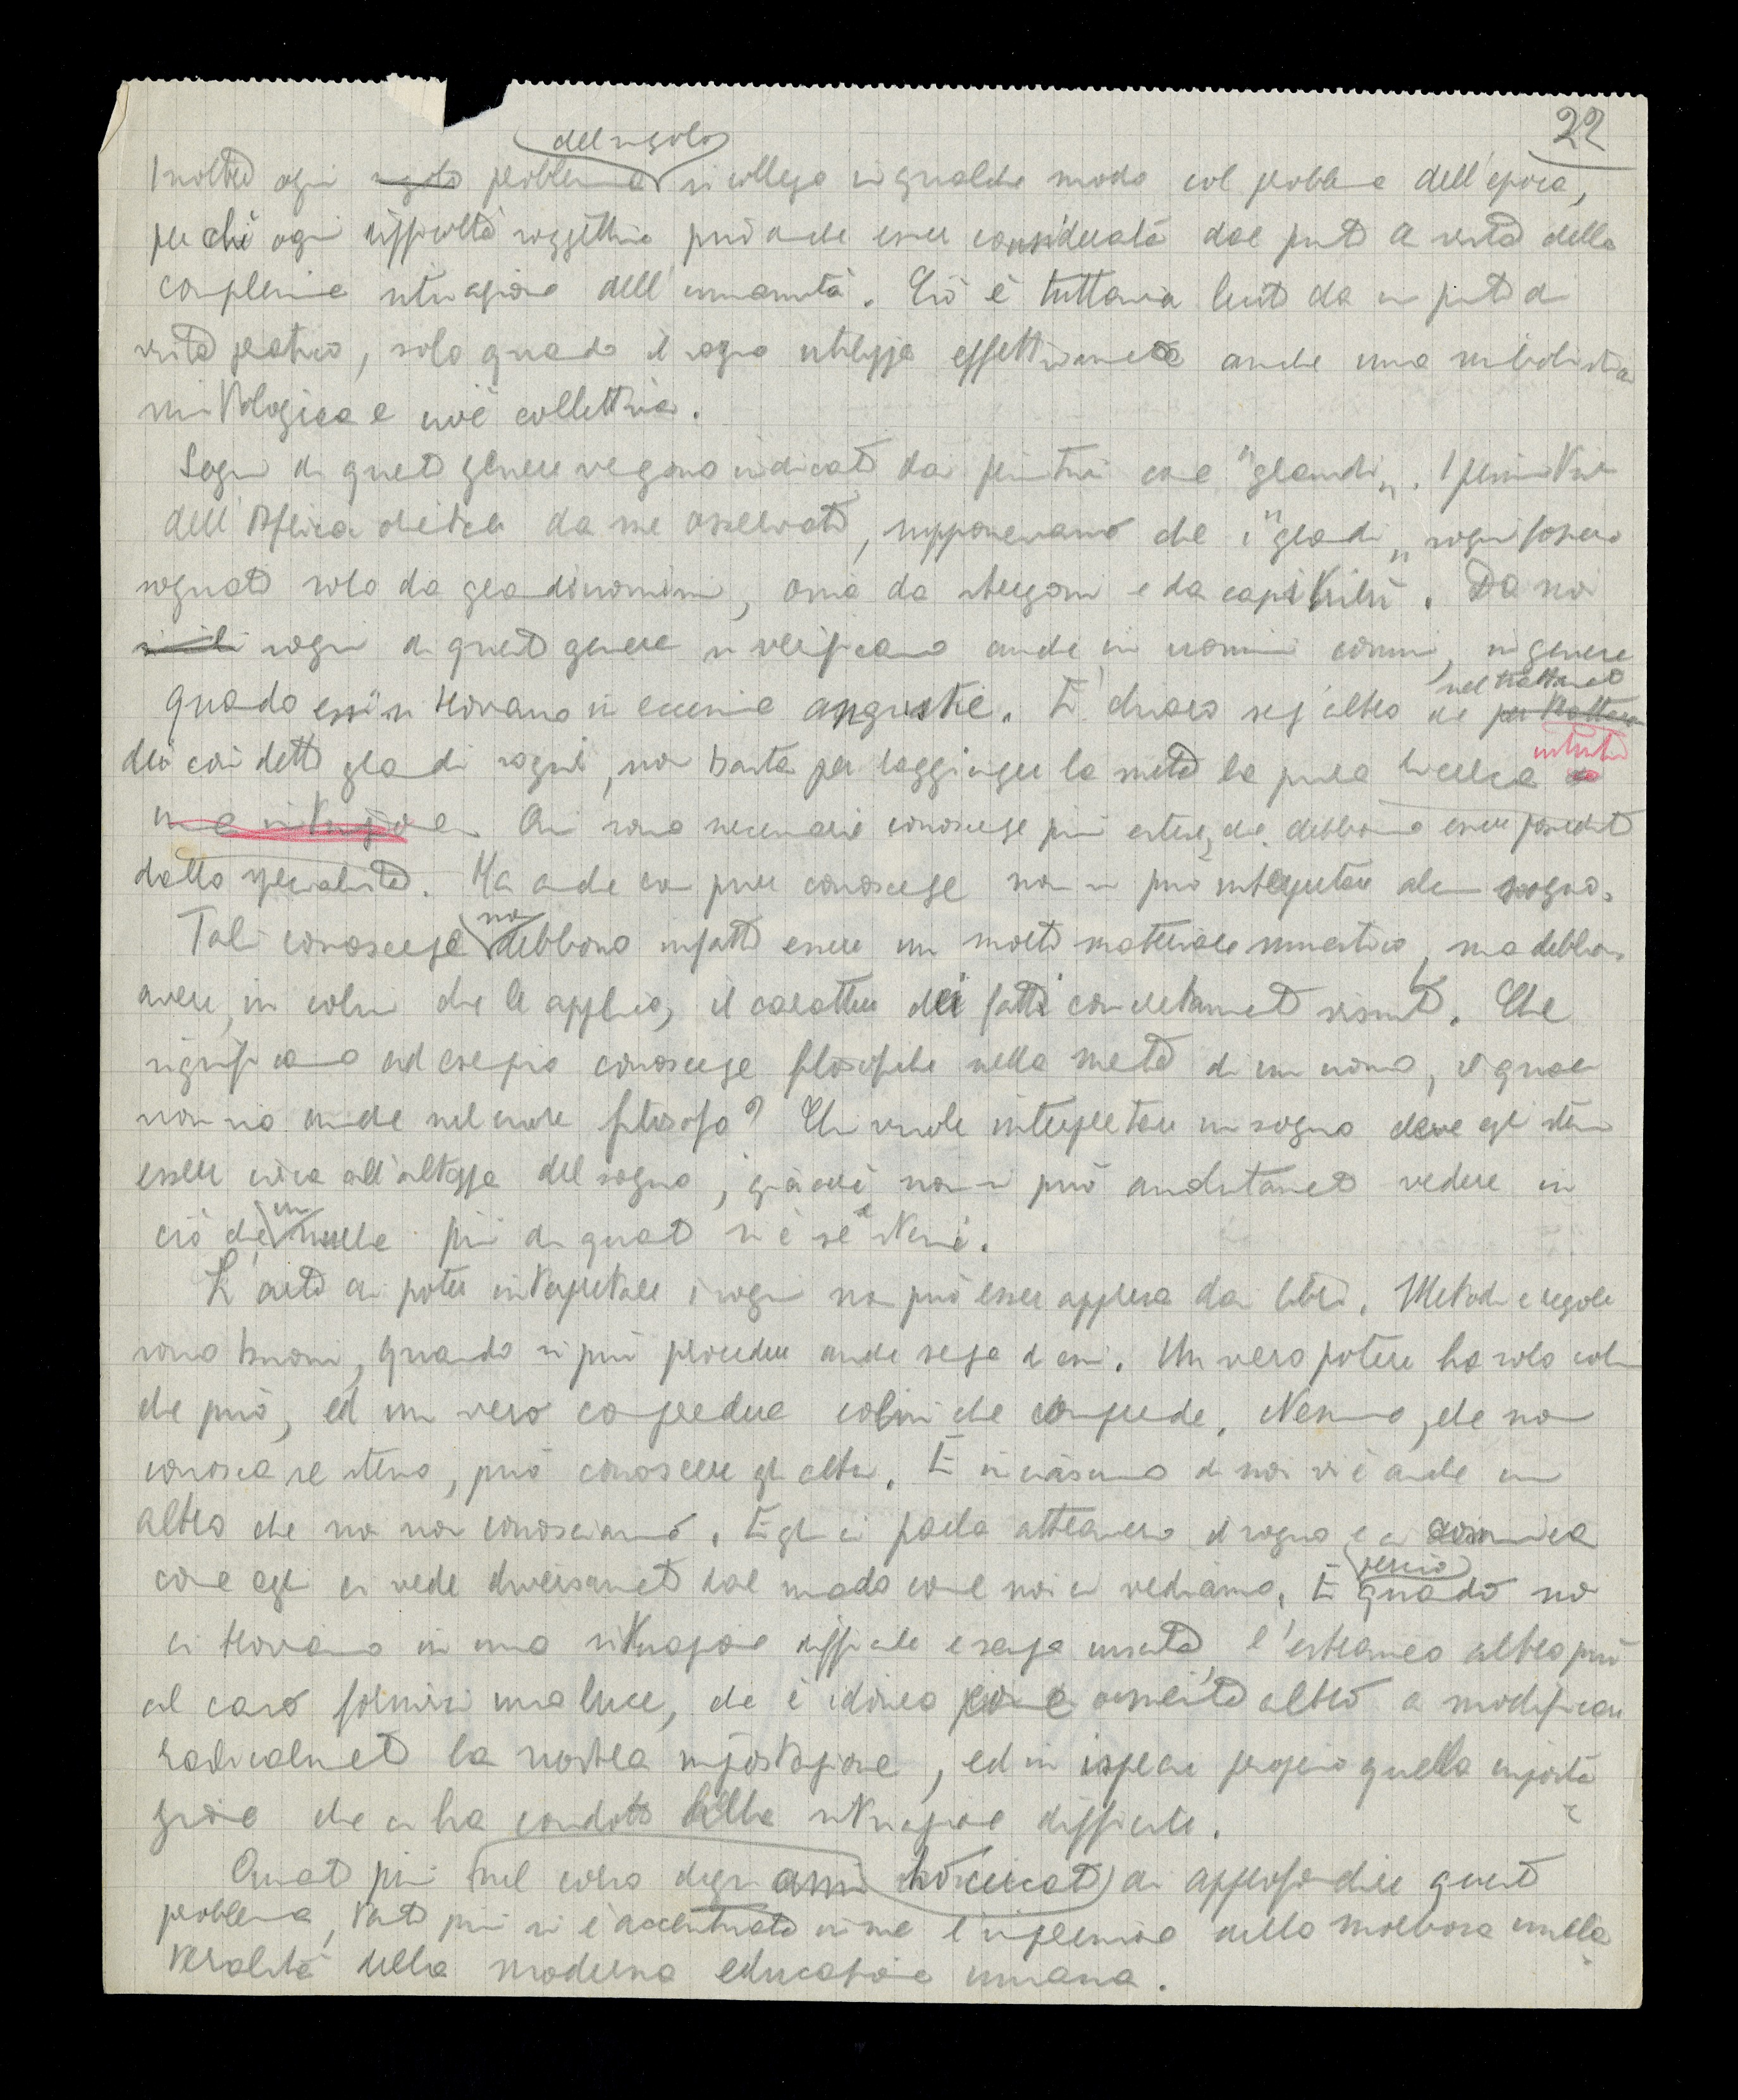 22
Inoltre ogni singolo problema del singolo si collega in qualche modo col problema dell'epoca,
perchè ogni difficoltà soggettiva può anche esser considerata dal punto di vista della
complessiva situazione dell'umanità. Ciò è tuttavia lecito da un punto di
vista pratico, solo quando il sogno utilizza effettivamente anche una simbolistica
mitologica e cioè collettiva.
Sogni di questo genere vengono indicati dai primitivi come "grandi". I primitivi
dell'Africa orientale da me osservati, supponevano che i "grandi" sogni fossero
sognati solo da grandi uomini, ossia da stregoni e da capi tribù. Da noi
simili sogni di questo genere si verificano anche in uomini comuni, in genere
quando essi si trovano in eccessive angustie. È chiaro senz'altro che per trattare nel trattamento
dei così detti grandi sogni, non basta per raggiungere la meta la pura ricerca intuitiva
una intuizione. Qui sono necessarie conoscenze più estese, che debbono essere possedute
dallo specialista. Ma anche con pure conoscenze non si può interpretare alcun sogno.
Tali conoscenze non debbono infatti essere un morto materiale mnestico, ma debbono
avere, in colui che le applica, il carattere dei fatti concretamente vissuti. Che
significano ad esempio conoscenze filosofiche nella mente di un uomo, il quale
non sia anche nel cuore filosofo? Chi vuole interpretare un sogno deve egli stesso
essere circa all'altezza del sogno, giacchè non si può anzitutto vedere in
ciò che più di quanto si è se stessi.
L'arte di poter interpretare i sogni non può esser appresa dai libri. Metodi e regole
sono buoni, quando si può procedere anche senza di essi. Un vero potere ha solo colui
che può, ed un vero comprendere colui che comprende. Nessuno, che non
conosca se stesso, può conoscere gli altri. E in ciascuno di noi vi è anche un
altro che noi non conosciamo. Egli ci parla attraverso il sogno e ci comunica
come egli ci vede diversamente dal modo come noi ci vediamo. E perciò quando noi
ci troviamo in una situazione difficile e senza uscita, l'estraneo altro può
al caso fornirci una luce, che è idonea a modificare
radicalmente la nostra impostazione, ed in ispecie proprio quella imposta-
zione che ci ha condotti nella situazione difficile.
Quanto più nel corso degli anni ho cercato di approfondire questo
problema, tanto più si è accentuata in me l'impressione della morbosa unila-
teralità della moderna educazione umana.